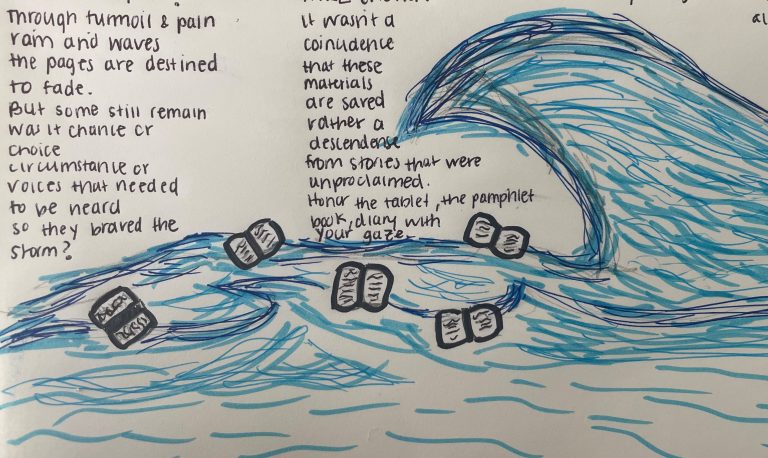 Through turmoil & pain
rain and waves
the pages are destined
to fade.
But some still remain
was it chance or
choice
circumstance or
voices that needed
to be heard
so they braved the
storm?
it wasn't a
coinudence
that these
materials
are saved
rather a
descendense
from stories that were
unproclaimed.
Honor the tablet, the pamphlet
book, diary with
your gaze